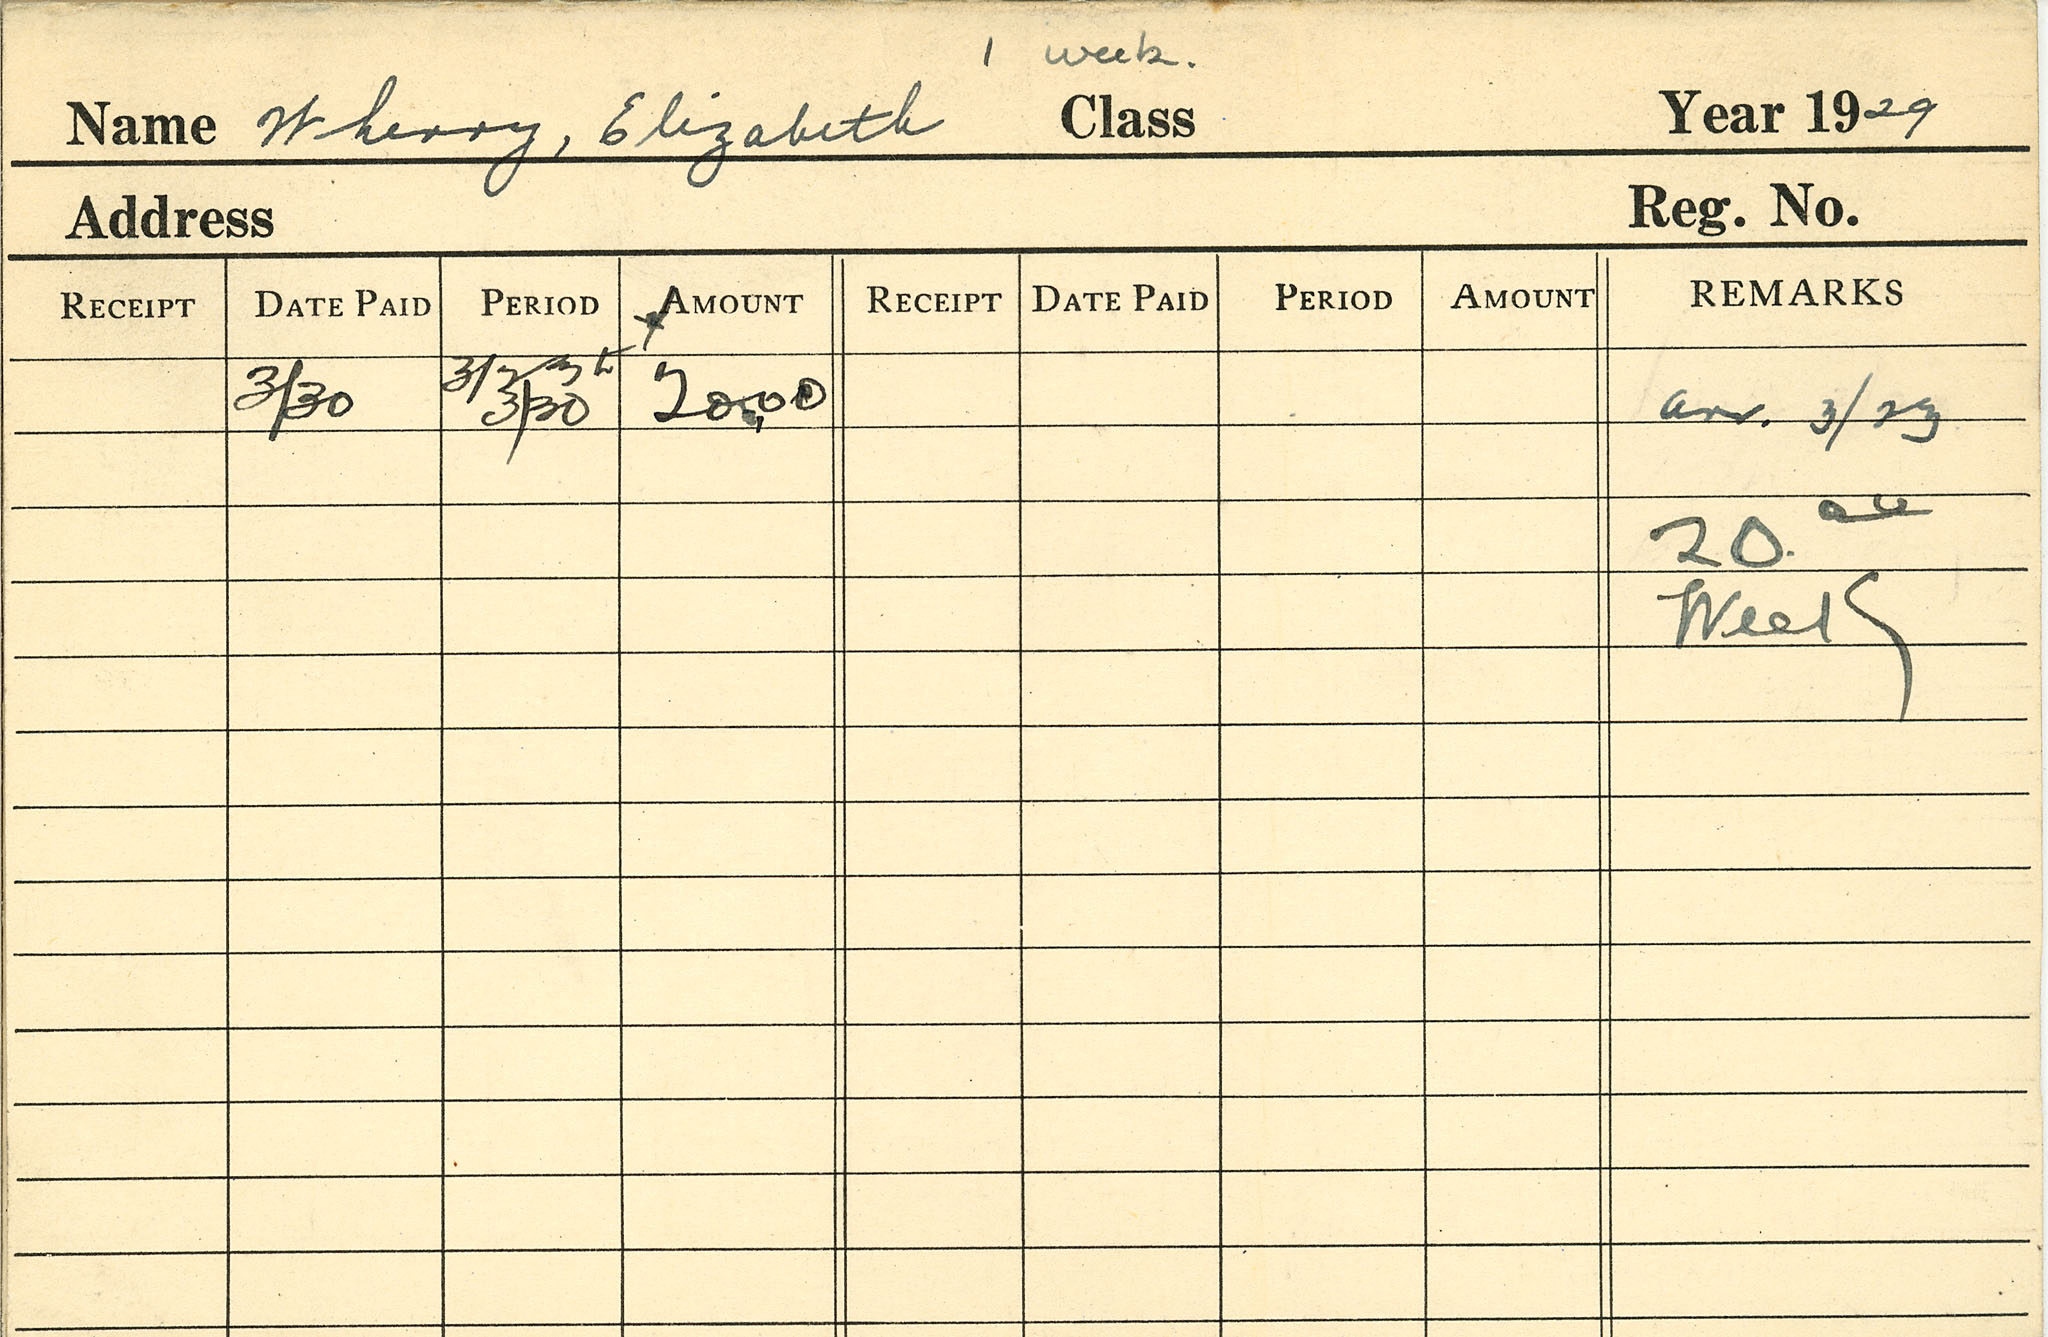 1 week.
Name Wherry, Elizabeth Class Year 1929
Address Reg. No.
RECEIPT DATE PAID PERIOD AMOUNT RECEIPT DATE PAID PERIOD AMOUNT REMARKS
3/30 3/23 to 20.00 arr. 3/23
3/30
20.
Week